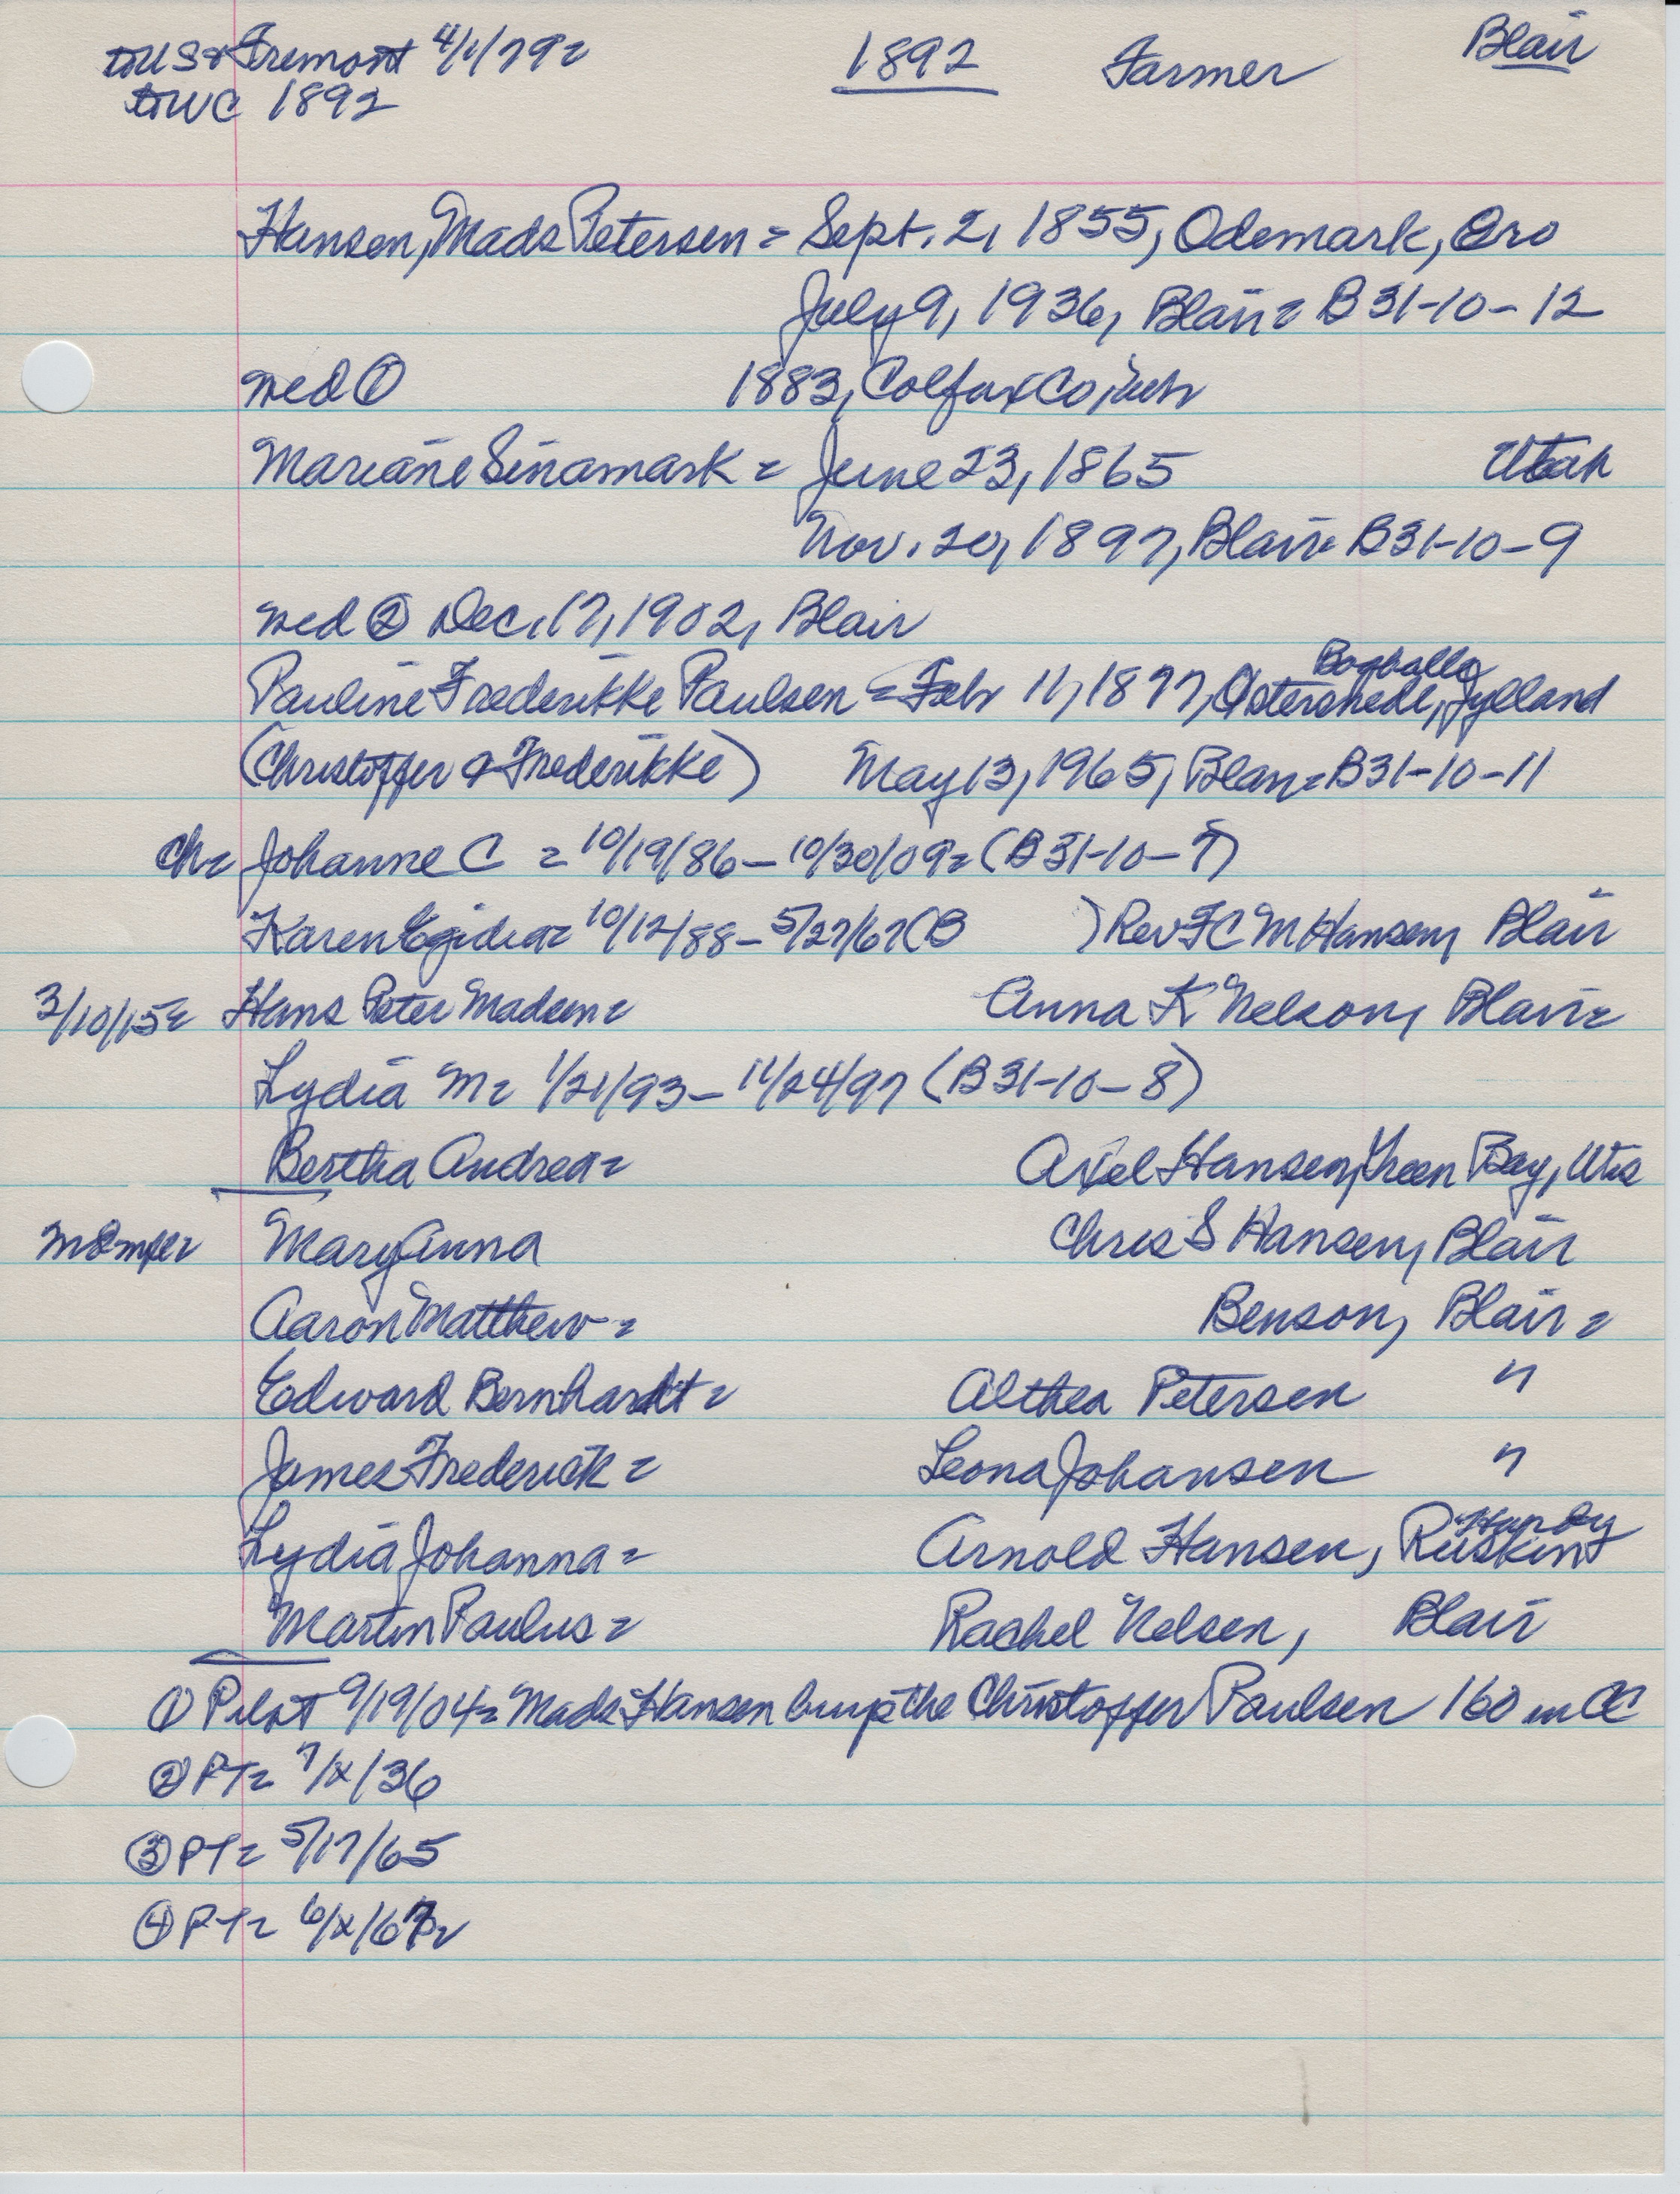 to US & Fremont 4/1/79=
to WC 1892
1892 Farmer Blair
Hansen, Mads Petersen = Sept. 2, 1855, Odemark, Øro
July 9, 1936, Blair = B31-10-12
wed ① 1883, Colfax Co, Neb
Mariane Sinamark = June 23, 1865 Utah
Nov. 20, 1897, Blair = B31-10-9
wed ② Dec. 17, 1902, Blair
Bogballe
Pauline Frederikke Paulsen = Feb 11, 1877, Jylland
(Christoffer & Frederikke) May 13, 1965, Blair = B31-10-11
ch= Johanne C = 10/19/86 – 10/30/09= (B31-10-7)
Karen Egidia= 10/12/88 – 5/27/67 (B ) Rev F C M Hansen, Blair
3/10/15= Hans Peter Madsen= Anna K Nelson, Blair=
Lydia M= 1/21/93 – 11/24/97 (B31-10-8)
Bertha Andrea= Axel Hansen, Green Bay, Wis
Mary Anna Chris S Hansen, Blair
Aaron Matthew= Benson, Blair=
Edward Bernhardt= Althea Petersen "
James Frederick= Leona Johansen "
Hardy
Lydia Johanna= Arnold Hansen, Ruskin
Martin Paulus= Rachel Nelsen, Blair
① Pilot 9/19/04= Mads Hansen buys the Christoffer Paulsen 160 in CC
② PT= 7/x/36
③ PT= 5/17/65
④ PT= 6/x/67